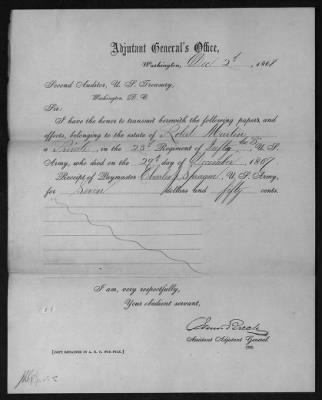 Adjutant General's Office,
Washington, Dec 2d, 1868
Second Auditor, U. S. Treasury,
Washington, D. C.
Sir:
I have the honor to transmit herewith the following papers and
effects, belonging to the estate of Robert
a Private, in the 25th Regiment of Infty Co. U. S.
Army, who died on the 29th day of 1867
Receipt of Paymaster Charles J. Sprague, U. S. Army,
for Seven dollars and fifty cents.
I am, very respectfully,
Your obedient servant,
Assistant Adjutant General.
[COPY RETAINED IN A. G. O. FOR FILE.]